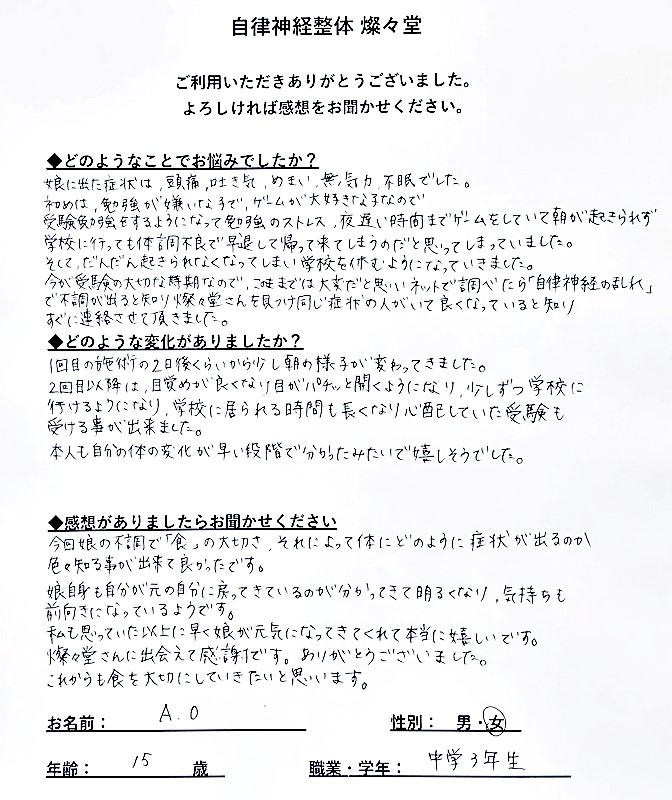 自律神経整体 燦々堂
ご利用いただきありがとうございました。
よろしければ感想をお聞かせください。
◆どのようなことでお悩みでしたか？
娘に出た症状は、頭痛、吐き気、めまい、無気力、不眠でした。
初めは、勉強が嫌いな子で、ゲームが大好きな子なので
受験勉強をするようになって勉強のストレス、夜遅い時間までゲームをしていて朝が起きられず
学校に行っても体調不良で早退して帰って来てしまうのだと思ってしまっていました。
そして、だんだん起きられなくなってしまい学校を休むようになっていきました。
今が受験の大切な時期なので、このままでは大変だと思いネットで調べたら「自律神経のみだれ」
で不調が出ると知り燦々堂さんを見つけ同じ症状の人がいて良くなっていると知り
すぐに連絡させて頂きました。
◆どのような変化がありましたか？
1回目の施術の2日後くらいから少し朝の様子が変わってきました。
2回目以降は、目覚めが良くなり目がパチッと開くようになり、少しずつ学校に
行けるようになり、学校に居られる時間も長くなり心配していた受験も
受ける事が出来ました。
本人も自分の体の変化が早い段階で分かったみたいで嬉しそうでした。
◆感想がありましたらお聞かせください
今回娘の不調で「食」の大切さ、それによって体にどのように症状が出るのか
色々知る事が出来て良かったです。
娘自身も自分が元の自分に戻ってきているのが分かってきて明るくなり、気持ちも
前向きになっているようです。
私も思っていた以上に早く娘が元気になってきてくれて本当に嬉しいです。
燦々堂さんに出会えて感謝です。ありがとうございました。
これからも食を大切にしていきたいと思います。
お名前： A.O 性別： 男・女
年齢： 15 歳 職業・学年： 中学3年生